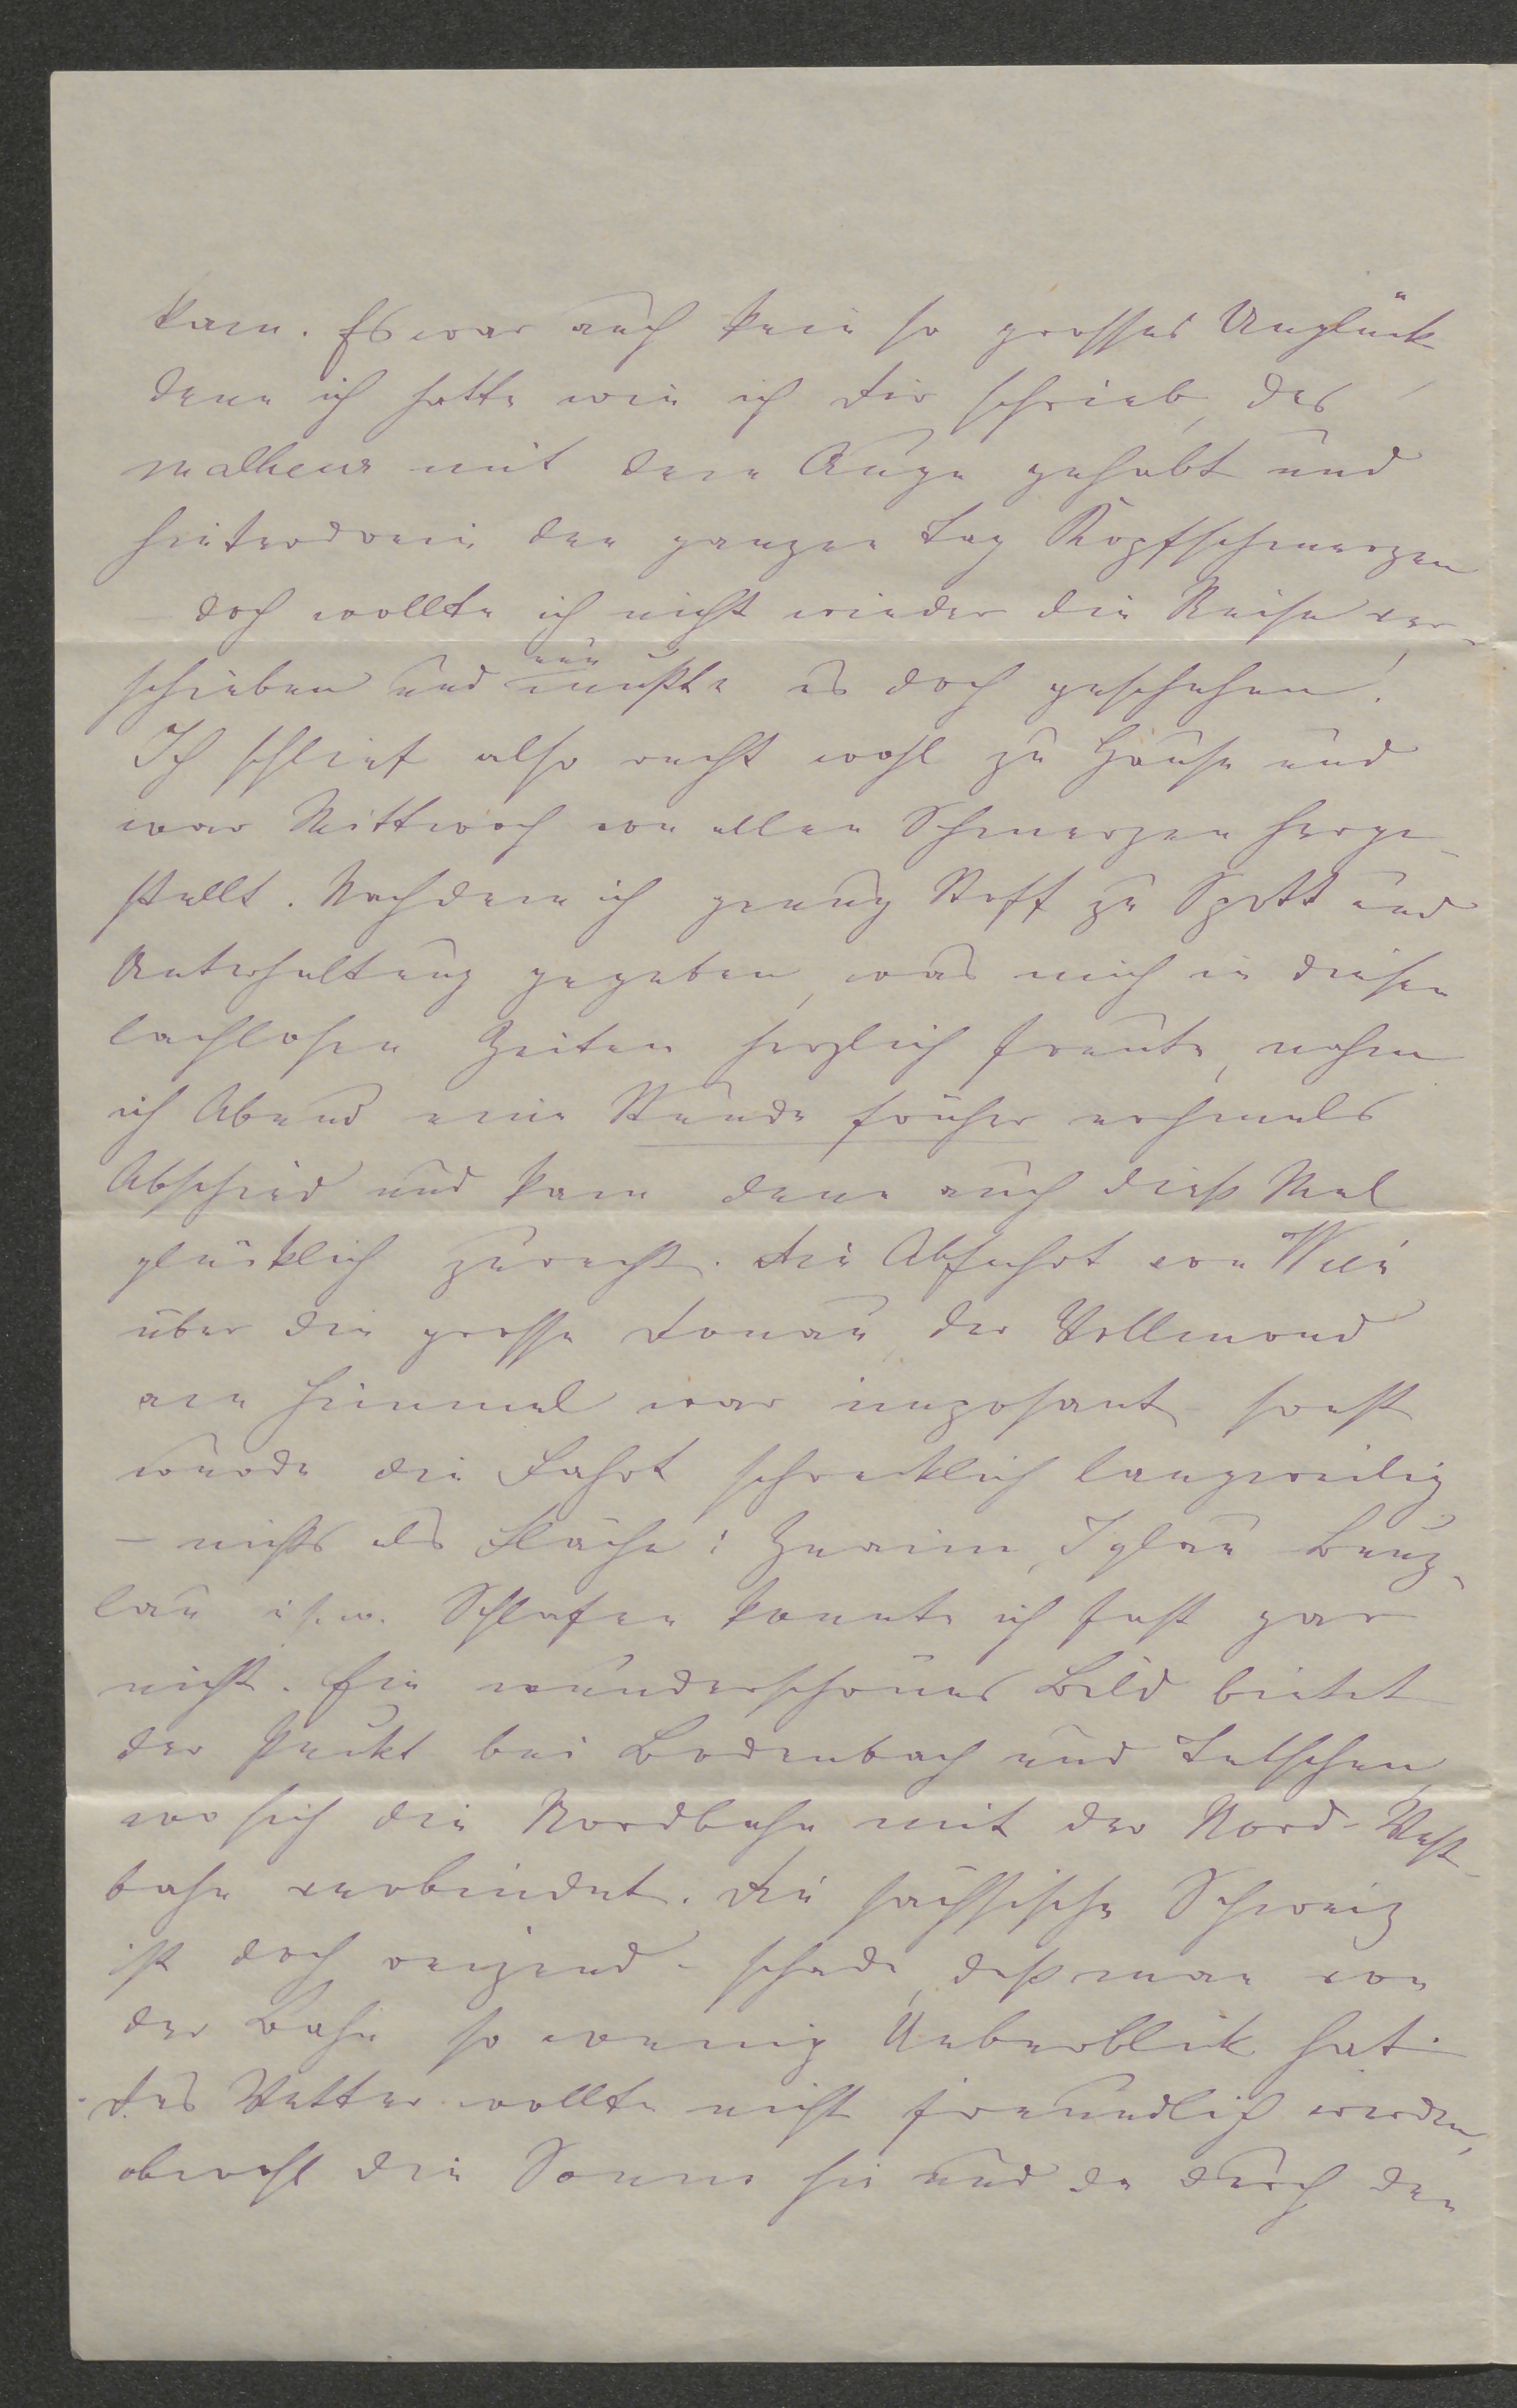 kam. Es war auch kein so grosses Unglück
denn ich hatte wie ich Dir schrieb, das
malheur mit dem Auge gehabt und
hinterdrein den ganzen Tag Kopfschmerzen
doch wollte ich nicht wieder die Reise ver-
schieben und nun mußte es doch geschehen!
Ich schlief also recht wohl zu Hause und
war Mittwoch von allen Schmerzen herge-
stellt. Nachdem ich genug Stoff zu Spott und
Unterhaltung gegeben, was mich in diesen
lachlosen Zeiten herzlich freute, nahm
ich Abend eine Stunde früher nochmals
Abschied und kam denn auch dieß Mal
glücklich zurecht. Die Abfahrt von Wien
über die grosse Donau, der Vollmond
am Himmel war imposant – sonst
wurde die Fahrt schrecklich langweilig
– nichts als Fläche: Znaim, Iglau Bunz-
lau u.s.w. Schlafen konnte ich fast gar
nicht. Ein wunderschönes Bild bietet
der Punkt bei Bodenbach und Tetschen,
wo sich die Nordbahn mit der Nord-West-
bahn verbindet. Die sächsische Schweiz
ist doch reizend – schade, daß man von
der Bahn so wenig Ueberblick hat.
Das Wetter wollte nicht freundlich werden,
obwohl die Sonne hie und da durch den